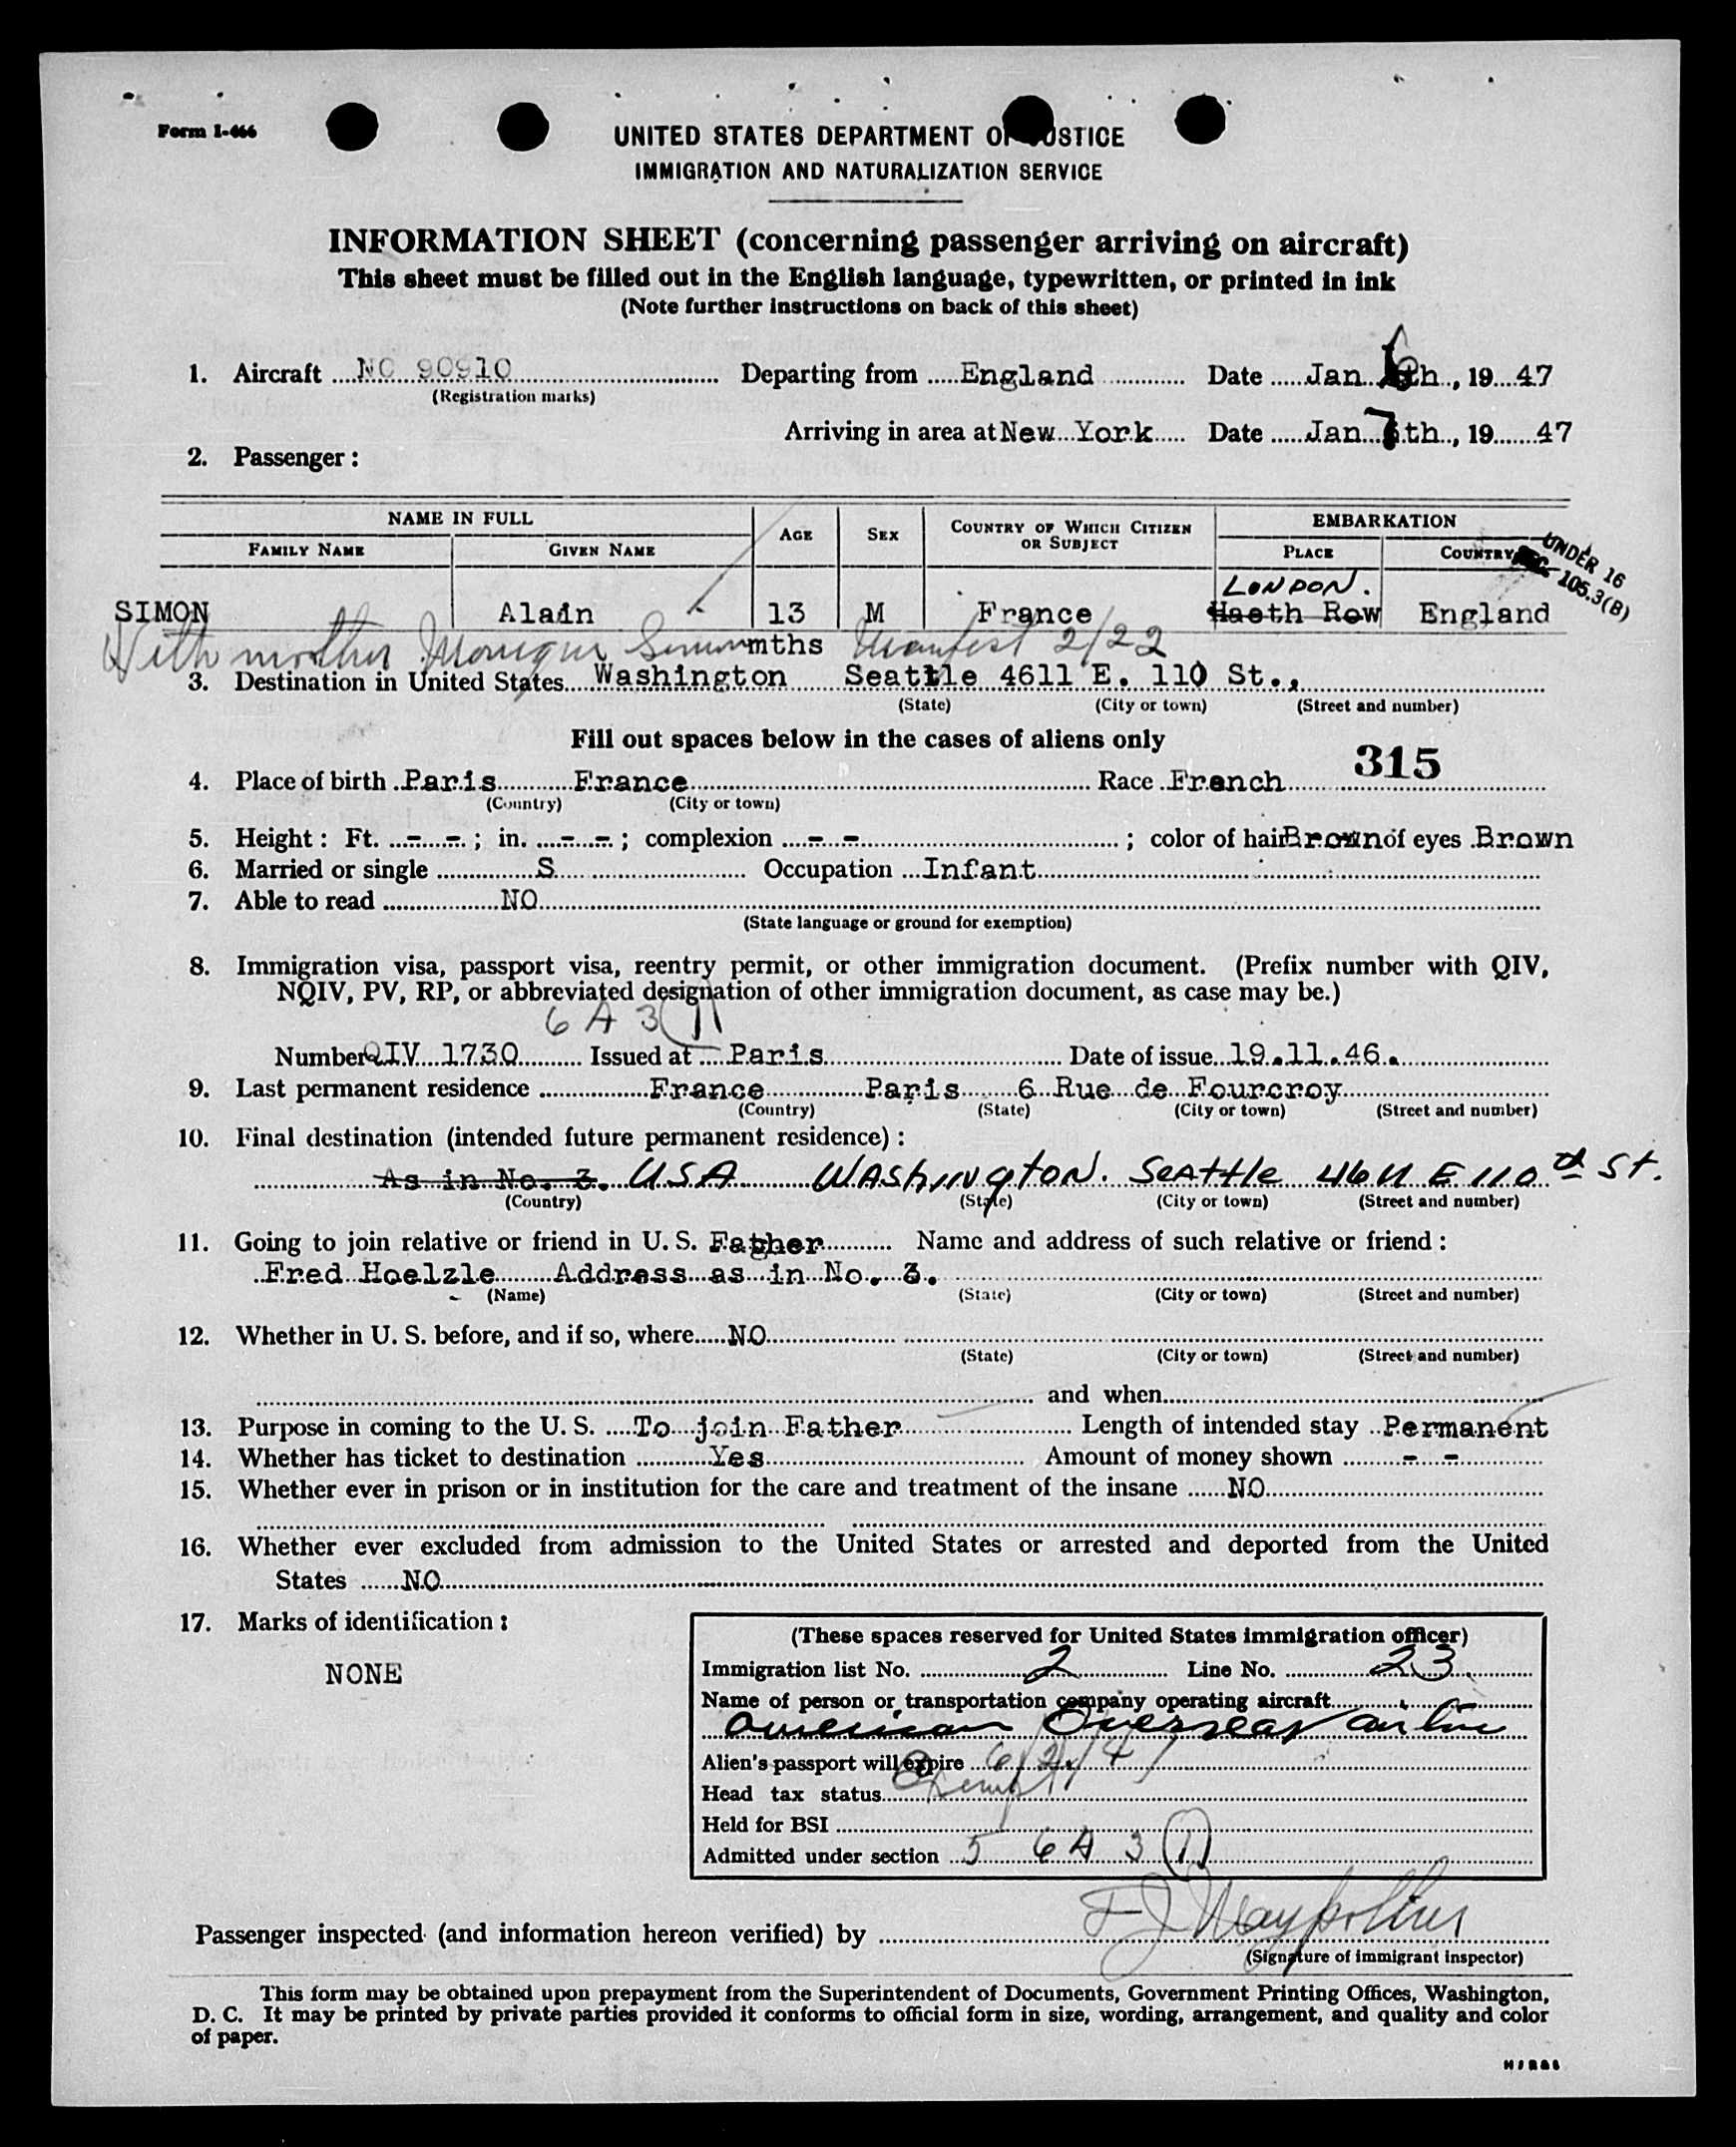 Form I-466
UNITED STATES DEPARTMENT OF JUSTICE
IMMIGRATION AND NATURALIZATION SERVICE
INFORMATION SHEET (concerning passenger arriving on aircraft)
This sheet must be filled out in the English language, typewritten, or printed in ink
(Note further instructions on back of this sheet)
1. Aircraft NC 90910 Departing from England Date Jan 6th, 19 47
(Registration marks)
Arriving in area at New York Date Jan 7th, 19 47
2. Passenger:
NAME IN FULL AGE SEX COUNTRY OF WHICH CITIZEN OR SUBJECT EMBARKATION
FAMILY NAME GIVEN NAME PLACE COUNTRY
UNDER 16
SEC. 105.3(B)
LONDON.
SIMON Alain 13 M France Haeth Row England
With mother Monique Simon mths Manifest 2/22
3. Destination in United States Washington Seattle 4611 E. 110 St.,
(State) (City or town) (Street and number)
Fill out spaces below in the cases of aliens only
315
4. Place of birth Paris France Race French
(Country) (City or town)
5. Height: Ft. - - ; in. - - ; complexion - - ; color of hair Brown of eyes Brown
6. Married or single S Occupation Infant
7. Able to read NO
(State language or ground for exemption)
8. Immigration visa, passport visa, reentry permit, or other immigration document. (Prefix number with QIV,
NQIV, PV, RP, or abbreviated designation of other immigration document, as case may be.)
6 A 3 (1)
Number QIV 1730 Issued at Paris Date of issue 19.11.46.
9. Last permanent residence France Paris 6 Rue de Fourcroy
(Country) (State) (City or town) (Street and number)
10. Final destination (intended future permanent residence):
As in No. 3. USA WASHINGTON. SEATTLE 4611 E 110th St.
(Country) (State) (City or town) (Street and number)
11. Going to join relative or friend in U. S. Father Name and address of such relative or friend:
Fred Hoelzle Address as in No. 3.
(Name) (State) (City or town) (Street and number)
12. Whether in U. S. before, and if so, where NO
(State) (City or town) (Street and number)
and when
13. Purpose in coming to the U. S. To join Father Length of intended stay Permanent
14. Whether has ticket to destination Yes Amount of money shown - -
15. Whether ever in prison or in institution for the care and treatment of the insane NO
16. Whether ever excluded from admission to the United States or arrested and deported from the United
States NO
17. Marks of identification:
NONE
(These spaces reserved for United States immigration officer)
Immigration list No. 2 Line No. 23
Name of person or transportation company operating aircraft
American Overseas Airline
Alien's passport will expire 6/2/47
Head tax status Exempt
Held for BSI
Admitted under section 5 6 A 3 (1)
Passenger inspected (and information hereon verified) by
(Signature of immigrant inspector)
This form may be obtained upon prepayment from the Superintendent of Documents, Government Printing Offices, Washington,
D. C. It may be printed by private parties provided it conforms to official form in size, wording, arrangement, and quality and color
of paper.